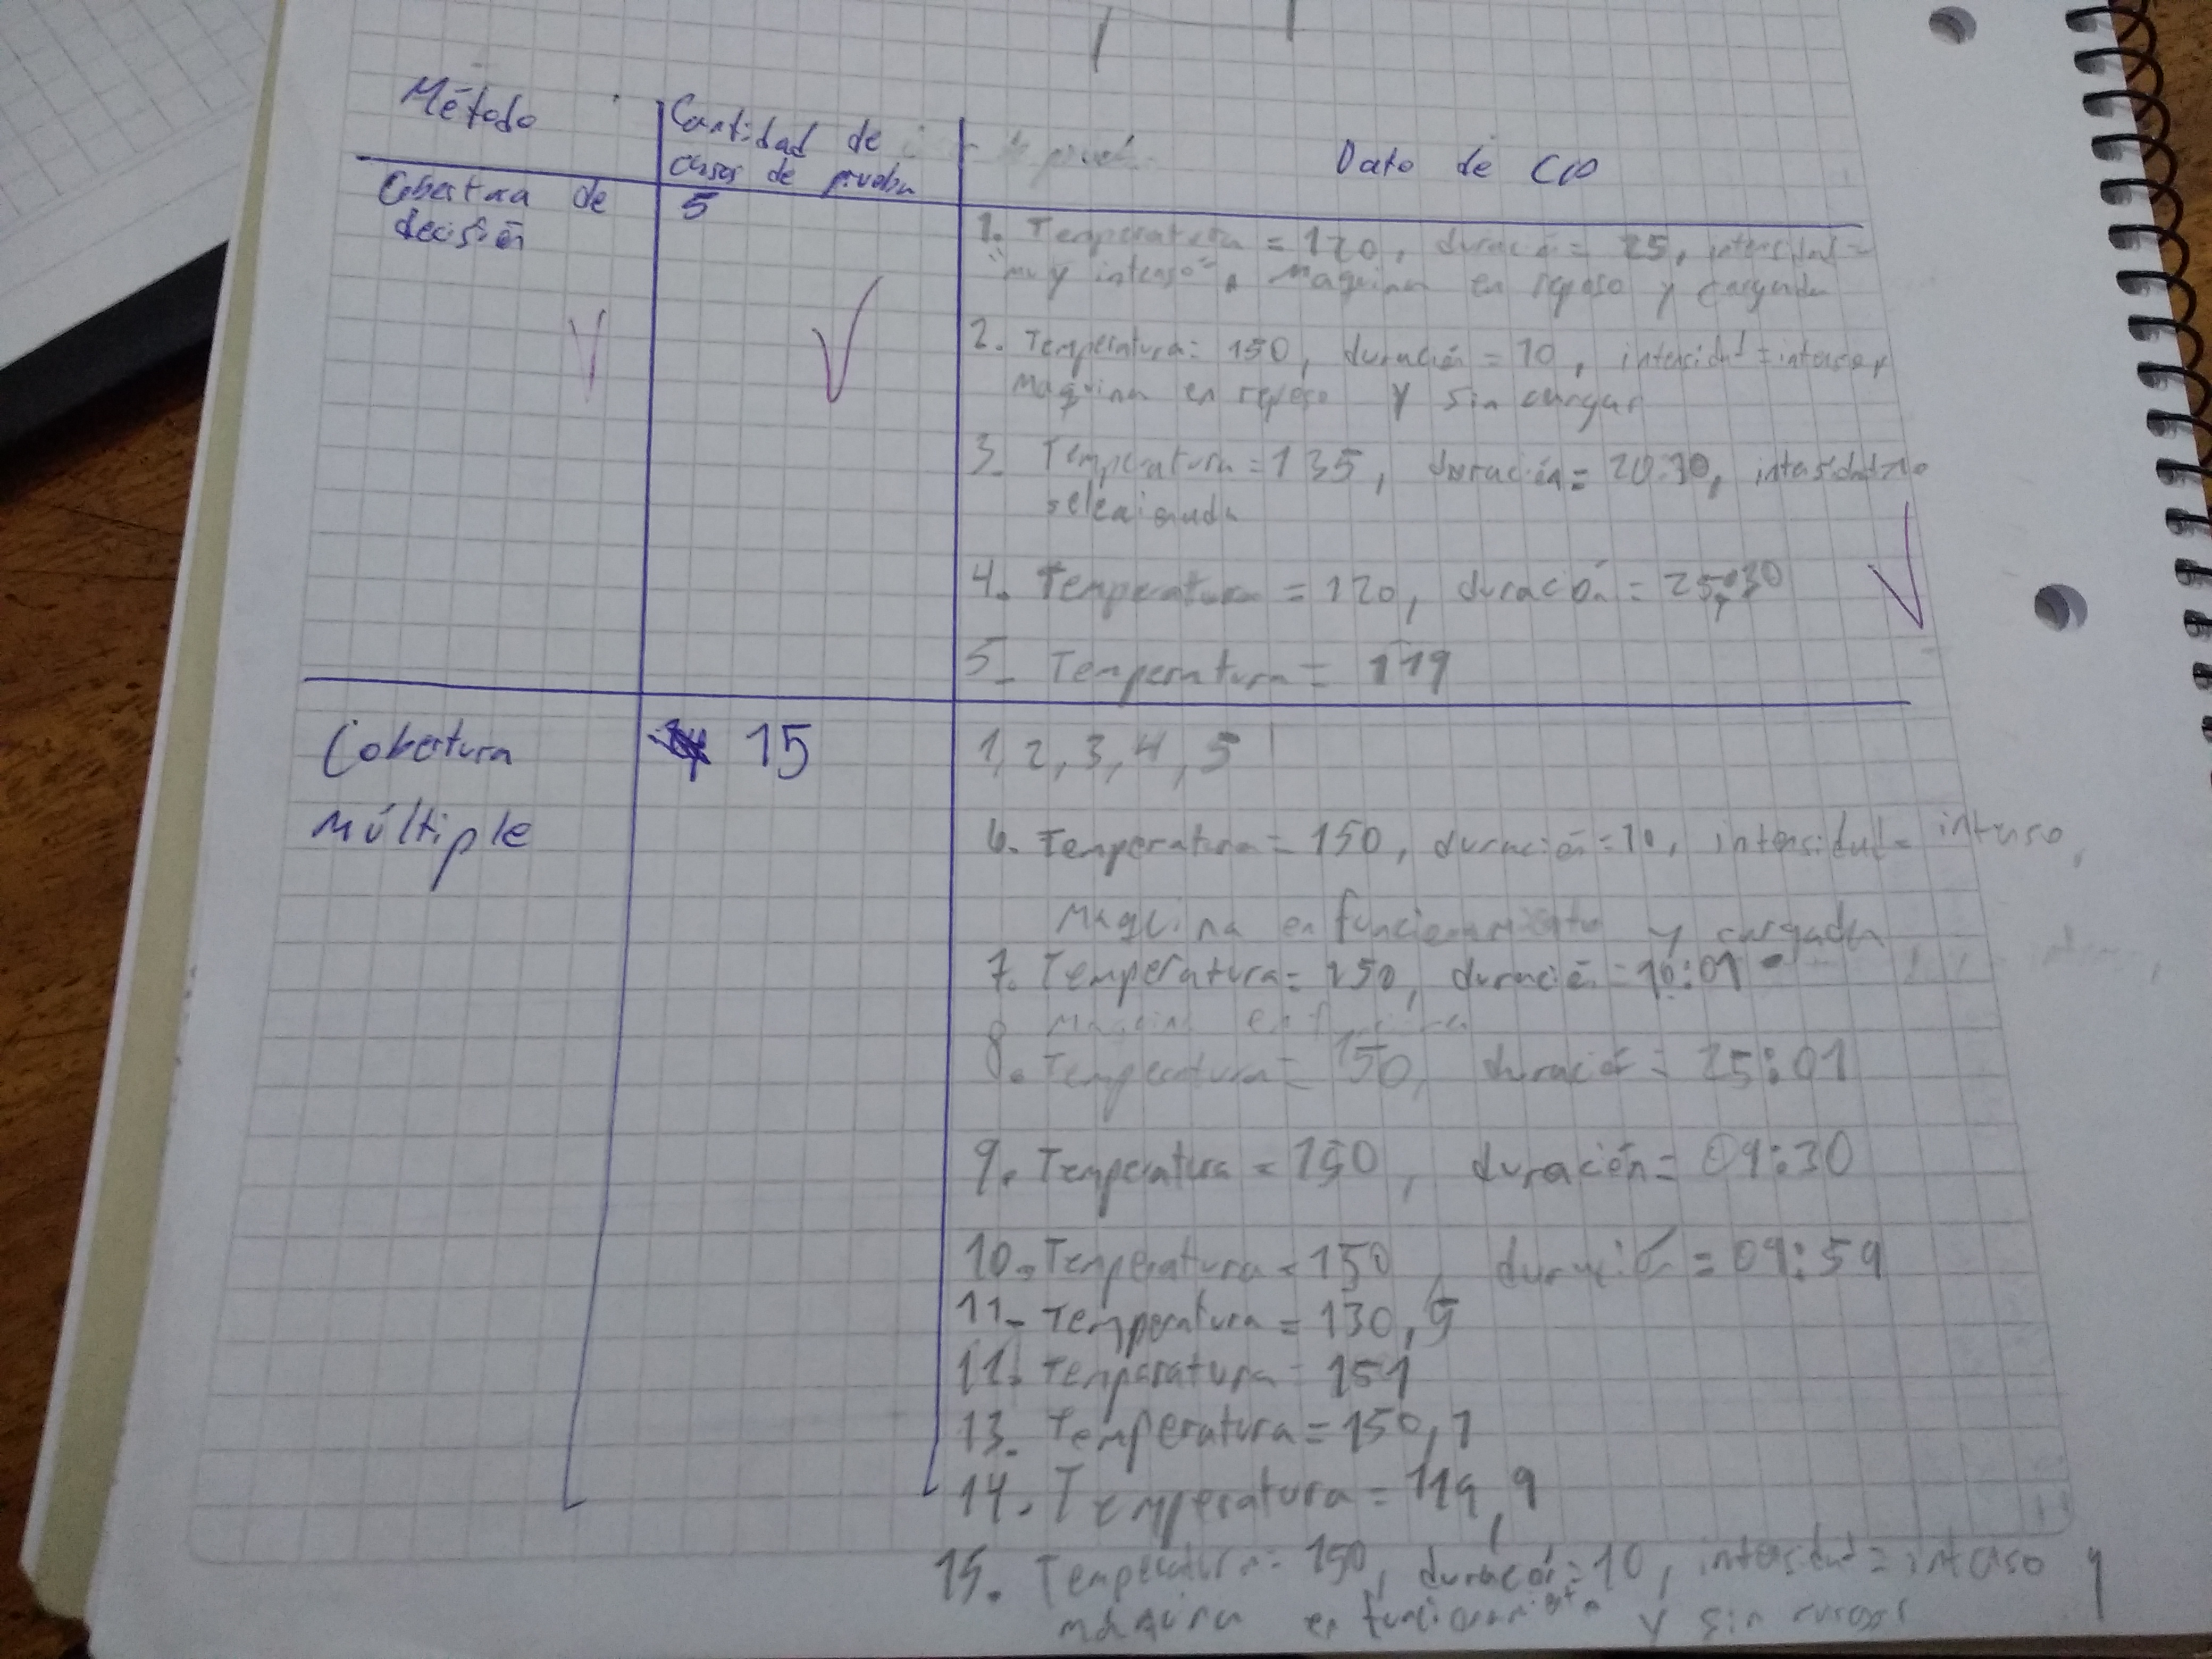 Método
Cantidad de
casos de prueba
Dato de CP
Cobertura de
decisión
5
1. Temperatura = 120, duración = 25, intensidad =
"muy intenso", Maquina en reposo y cargada
2. Temperatura: 150, duración = 10, intensidad = intenso,
Maquina en reposo y sin cargar
3. Temperatura = 135, duración = 20:30, intensidad no
seleccionada
4. Temperatura = 120, duración = 25:30
5. Temperatura = 119
Cobertura
Múltiple
15
1, 2, 3, 4, 5
6. Temperatura = 150, duración = 10, intensidad = intenso,
Maquina en funcionamiento y cargada
7. Temperatura = 150, duración = 10:01
8. Temperatura = 150, duración = 25:01
9. Temperatura = 150, duración = 09:30
10. Temperatura = 150, duración = 09:59
11. Temperatura = 130,5
12. Temperatura = 151
13. Temperatura = 150,1
14. Temperatura = 119,9
15. Temperatura = 150, duración = 10, intensidad = intenso y
máquina en funcionamiento y sin